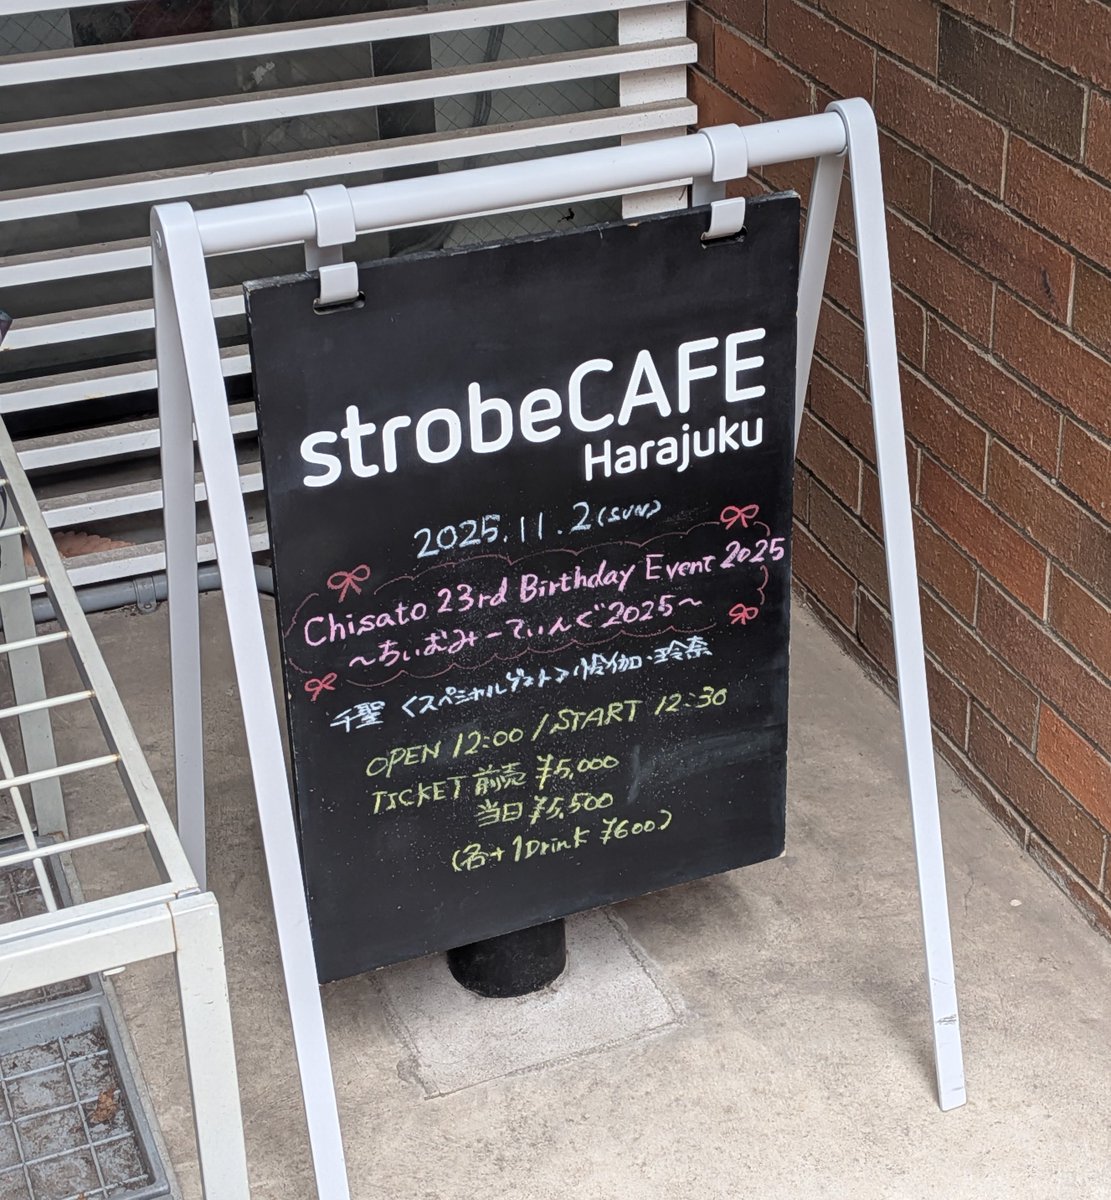 strobeCAFE
Harajuku
2025.11.2(SUN)
Chisato 23rd Birthday Event 2025
～ちぃおみーてぃんぐ2025～
千聖 〈スペシャルゲスト〉怜伽・玲奈
OPEN 12:00 / START 12:30
TICKET 前売 ¥5,000
当日 ¥5,500
(各+1Drink ¥600)